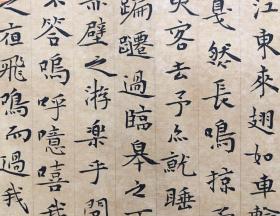 江東來翅如車
戛然長鳴掠予
客去予亦就睡
蹁躚過臨皋之
赤壁之游樂乎問
不答嗚呼噫嘻我
之夜飛鳴而過我